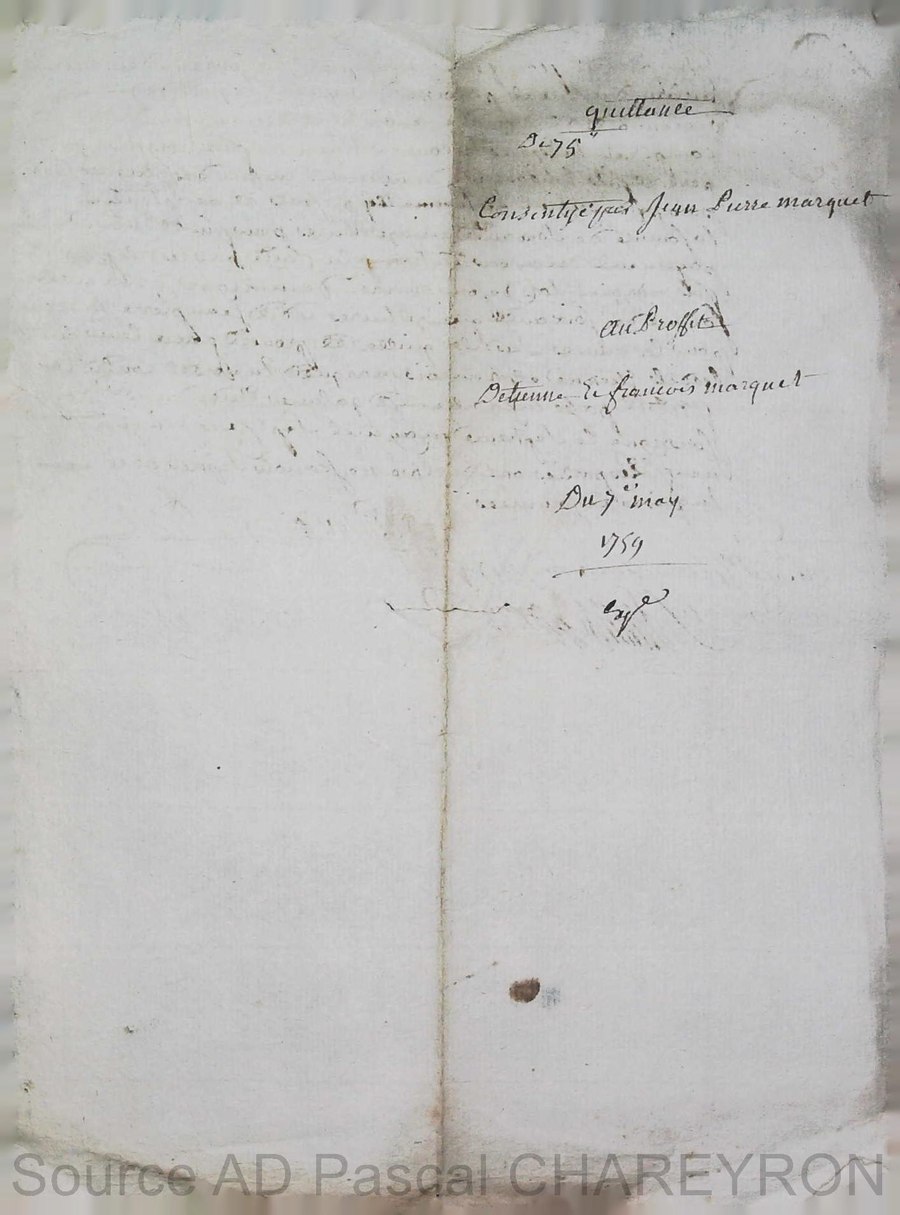 quittance
De 75 ll
Consentye par Jean Pierre marquet
au Proffit
Detienne et francois marquet
Du 7e may
1759
expé
Source AD Pascal CHAREYRON